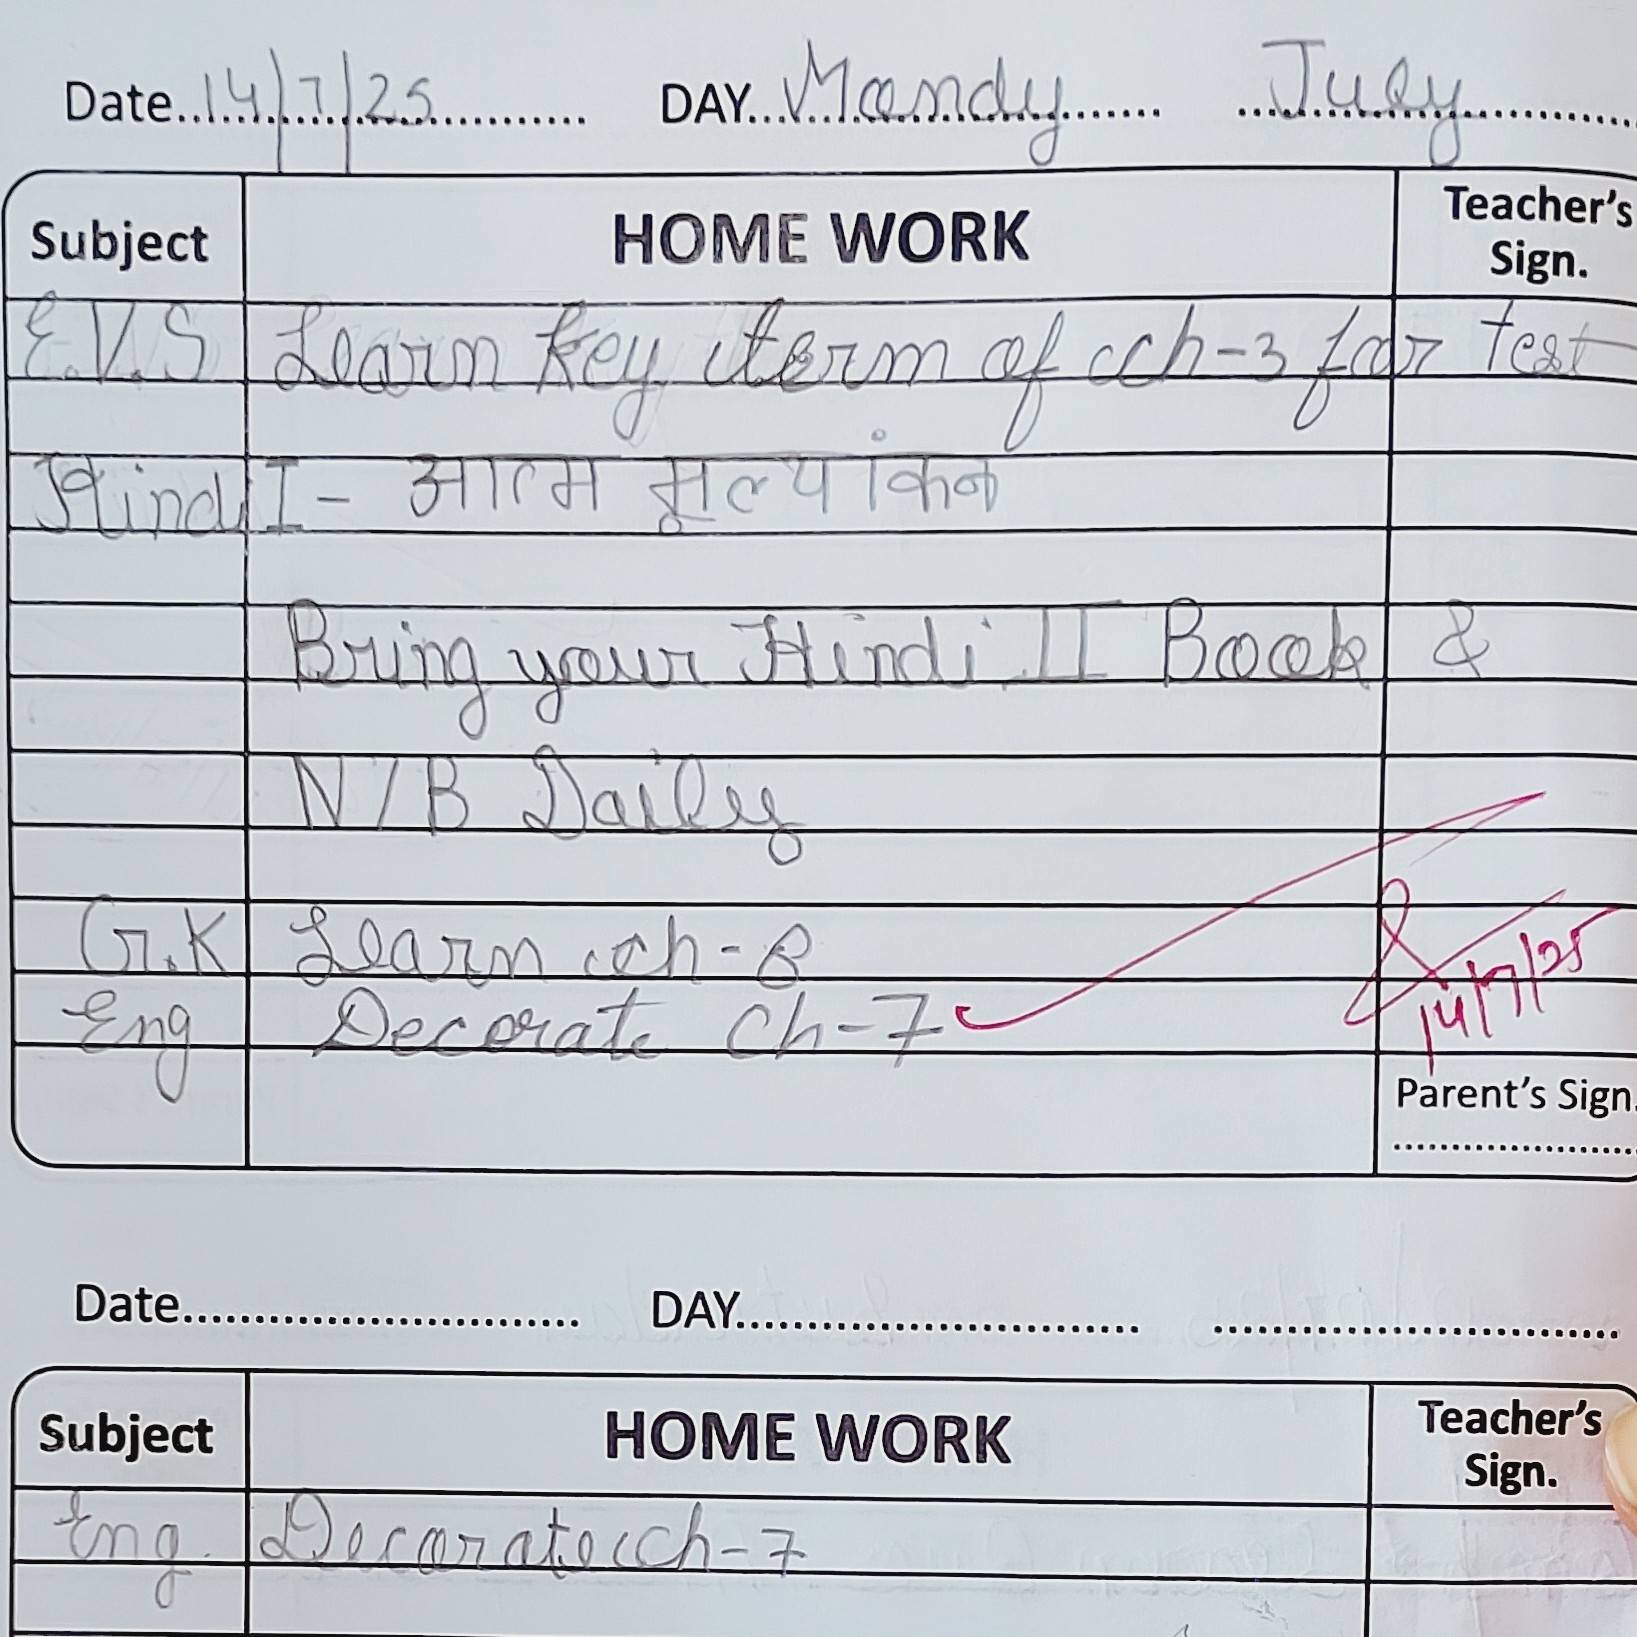 Date..14/7/25.......... DAY...Mondy...... ...July............
Subject HOME WORK Teacher's Sign.
E.V.S Learn key term of ch-3 for test
Hindi I - आत्म मूल्यांकन
Bring your Hindi II Book &
N/B Daily
G.K Learn ch-8
Eng Decorate Ch-7
14/7/25
Parent's Sign.
Date............................ DAY............................ ............................
Subject HOME WORK Teacher's Sign.
Eng. Decorate ch-7